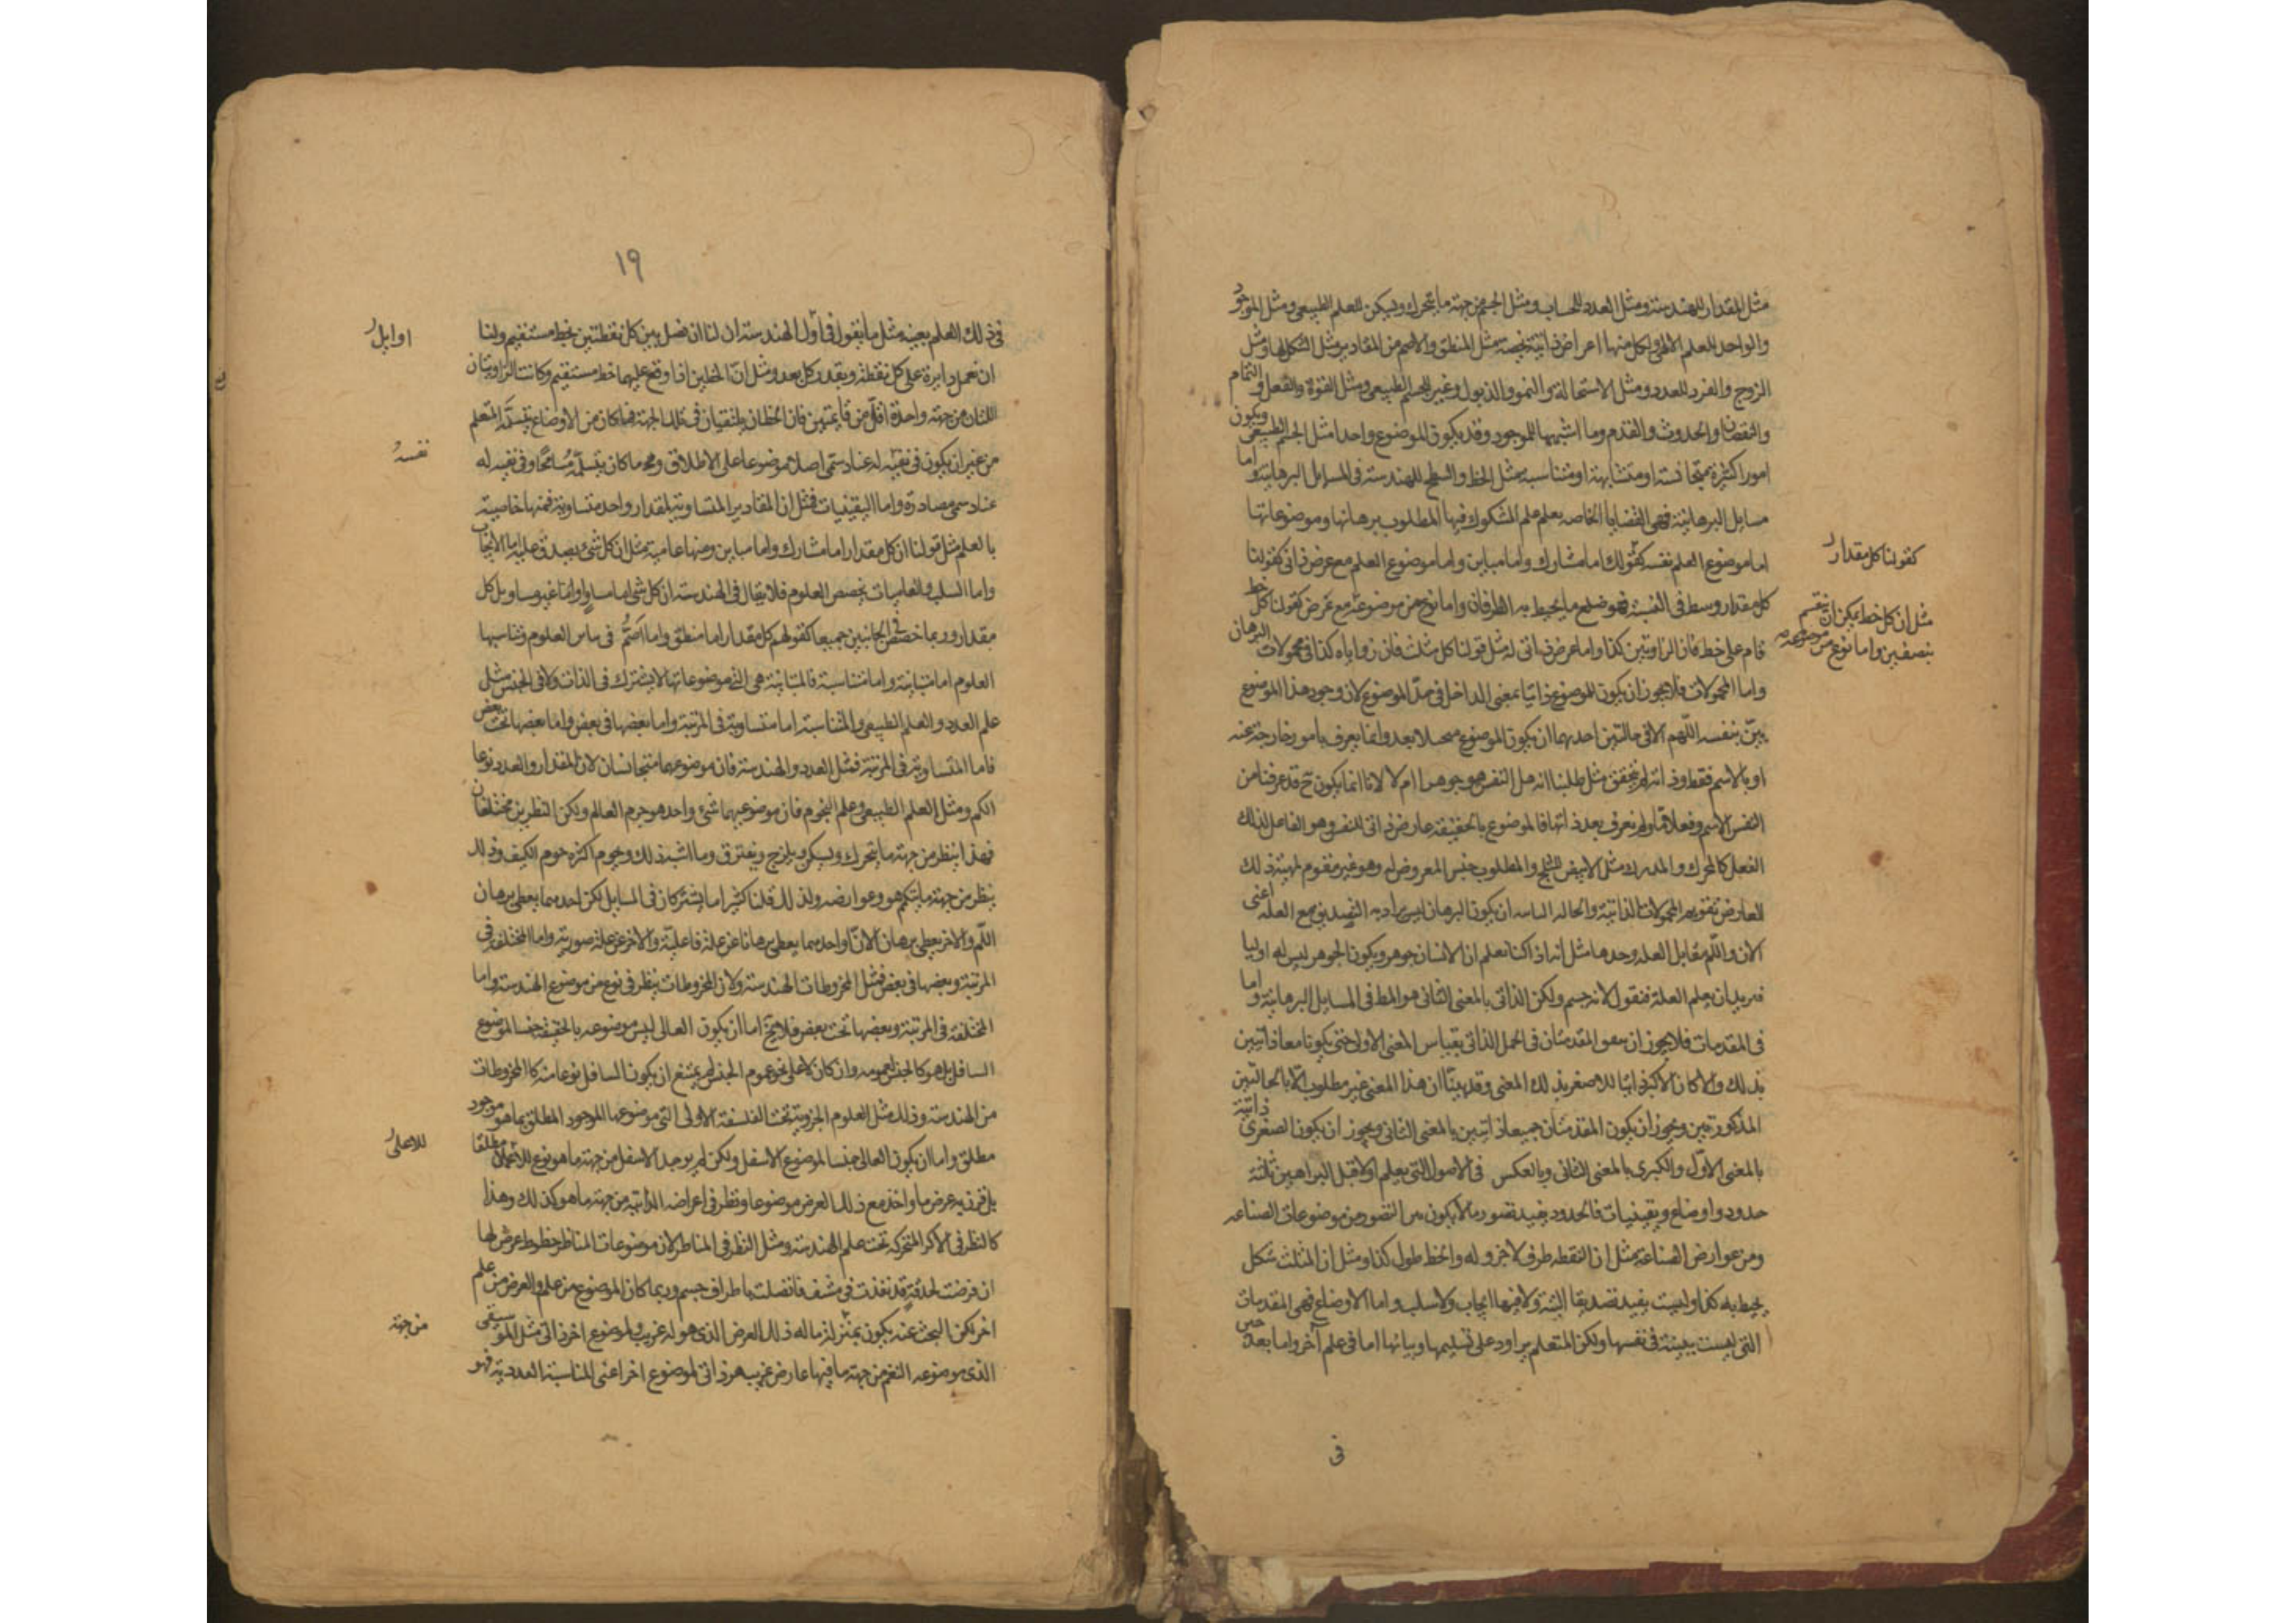 مثل المقدار للهندسة ومثل العدد للحساب ومثل الجسم من جهة ما يتحرك ويسكن للعلم الطبيعى ومثل الموجود
والواحد للعلم الالهى ولكل منها اعراض ذاتية تخصه مثل المنطق والاصم من المقادير ومثل الشكل لها ومثل
الزوج والفرد للعدد ومثل الاستحالة والنمو والذبول وغير للجسم الطبيعى ومثل القوة والفعل والتمام
والنقصان والحدوث والقدم وما اشبهها للموجود وقد يكون الموضوع واحدا مثل الجسم الطبيعى ويكون
امورا كثيرة متجانسة او متشابهة او متناسبة مثل الخط والسطح للهندسة فى المسايل البرهانية واما
مسايل البرهانية فهى القضايا الخاصه بعلم علم المشكوك فيها المطلوب برهانها وموضوعاتها
اما موضوع العلم نفسه كقولك اما مشارك واما مباين واما موضوع العلم مع عرض ذاتى كقولنا
كل مقدار وسط فى النسبة فهو ضلع ما يحيط به الطرفان واما نوع من موضوعه مع عرض كقولنا كل خط
قام على خط فان الزاويتين كذا واما عرض ذاتى له مثل قولنا كل مثلث فان زواياه كذا فى محمولات البرهان
واما المحمولات فلا يجوز ان يكون للموضوع ذاتيا بمعنى الداخل فى حد الموضوع لان وجود هذا الموضوع
بين بنفسه اللهم الا فى حالتين احديهما ان يكون الموضوع بعد وانما يعرف بامور خارجة عنه
او بالاسم فقط وذاته لم يتحقق مثل طلبنا انه هل النفس هو جوهر ام لا لانا انما يكون ح قد عرفنا من
النفس الاسم وفعلا ما ولم نعرف بعد ذاتها فالموضوع بالحقيقة عارض ذاتى للنفس وهو الفاعل لذلك
الفعل كالمحرك والمدرك مثل الابيض للثلج والمطلوب جنس المعروض له وهو غير مقوم لمهية ذلك
العارض تقويم المحمولات الذاتية والحاله ان يكون البرهان ليس يراد به مع العلة اعنى
الان واللم مقابل العلة وحدها مثل انه اذا كنا نعلم ان الانسان جوهر ويكون الجوهر ليس له اوليا
فنريد ان يعلم العلة فنقول لانه جسم ولكن الذاتى بالمعنى الثانى هو المط فى المسايل البرهانية واما
فى المقدمات فلا يجوز ان المقدمتان فى الحمل الذاتى بقياس المعنى الاول حتى يكونا معا ذاتيين
بذلك والا كان الاكبر ذاتيا للاصغر بذلك المعنى وقد بينا ان هذا المعنى غير مطلوب الا بالحالتين
المذكورتين ويجوز ان يكون المقدمتان جميعا ذاتيين بالمعنى الثانى ويجوز ان يكون الصغرى ذاتية
بالمعنى الاول والكبرى بالمعنى الثانى وبالعكس فى الاصول التى يعلم اولا قبل البراهين ثلثة
حدود واوضاع ويقينيات فالحدود يفيد تصور ما لا يكون بين التصور من موضوعات الصناعه
ومن عوارض الصناعة مثل ان النقطه طرف لا جزو له والخط طول كذا ومثل ان المثلث شكل
يحيط به كذا وليست يفيد تصديقا البتة ولا فيها ايجاب ولا سلب واما الاوضاع فهى المقدمات
التى ليست بينة فى نفسها ولكن المتعلم يراود على تسليمها وبيانها اما فى علم آخر واما بعد حين
كقولنا كل مقدار
مثل ان كل خط يمكن ان ينقسم
بنصفين واما نوع من موضوعه
فى
١٩
فى ذلك العلم بعينه مثل ما نقول فى اول الهندسة ان لنا ان نصل بين كل نقطتين بخط مستقيم ولنا
ان نعمل دايرة على كل نقطة وبقدر كل بعد ومثل ان الخطين اذا وقع عليهما خط مستقيم وكانت الزاويتان
اللتان من جهة واحدة اقل من قايمتين فان الخطان يلتقيان فى تلك الجهة فما كان من الاوضاع يتسلمه المتعلم
من غير ان يكون فى نفسه له عناد سمى اصلا موضوعا على الاطلاق وما كان يتسلمه مسامحا وفى نفسه له
عناد سمى مصادرة واما اليقينيات فمثل ان المقادير المتساوية لمقدار واحد متساوية فمنها خاصية
بالعلم مثل قولنا ان كل مقدار اما مشارك واما مباين ومنها عامية مثل ان كل شئ يصدق عليه اما الايجاب
واما السلب والعاميات يخصص العلوم فلا يقال فى الهندسة ان كل شى اما مساو او اما غير مساو بل كل
مقدار وربما خصص فى الجانبين جميعا كقولهم كل مقدار اما منطق واما اصم فى تباين العلوم وتناسبها
العلوم اما متباينة واما متناسبة فالمتباينة هى التى موضوعاتها لا يشترك فى الذات ولا فى الجنس مثل
علم العدد والعلم الطبيعى والمتناسبة اما متساوية فى المرتبة واما بعضها فى بعض واما بعضها تحت بعض
فاما المتساوية فى المرتبة فمثل العدد والهندسة فان موضوعهما متجانسان لان المقدار والعدد نوعا
الكم ومثل العلم الطبيعى وعلم النجوم فان موضوعيهما شئ واحد هو جرم العالم ولكن النظرين مختلفان
فهذا ينظر من جهة ما يتحرك ويسكن ويمتزج ويفترق وما اشبه ذلك حوم الكيف وذلك
ينظر من جهة ما يتكمم هو وعوارضه ولذلك قلنا كثيرا ما يشتركان فى المسايل لكن احدهما يعطى برهان
اللم والاخر يعطى برهان الان واحدهما يعطى برهانا عن علة فاعلية والاخر عن علة صورية واما المختلفة فى
المرتبة وبعضها فى بعض فمثل المخروطات للهندسة ولان المخروطات ينظر فى نوع من موضوع الهندسة واما
المختلفة فى المرتبة وبعضها تحت بعض فلا يخ اما ان يكون العالى ليس موضوعه بالحقيقة جنسا لموضوع
السافل بل هو كالجنس لعمومه وان كان لا على نحو عموم الجنس لم يمتنع ان يكون السافل نوعا منه كالمخروطات
من الهندسة وذلك مثل العلوم الجزوية تحت الفلسفة الاولى التى موضوعها الموجود المطلق بما هو موجود
مطلق واما ان يكون العالى جنسا لموضوع الاسفل ولكن لم يوجد الاسفل من جهة ما هو نوع للاعلى مطلقا
بل قرن به عرض ما واخذ مع ذلك العرض موضوعا ونظر فى اعراضه الذاتية من جهة ما هو كذلك وهذا
كالنظر فى الاكر المتحركة تحت علم الهندسة ومثل النظر فى المناظر لان موضوعات المناظر خطوط عرض لها
ان فرضت لحدقة قد نفذت فى مشف فاتصلت باطراف جسم وربما كان الموضوع من علم والعرض من علم
اخر لكن البحث عنه يكون بمنزلة ما له ذلك العرض الذى هو له غريب ولموضوع اخر ذاتى مثل الموسيقى
الذى موضوعه النغم من جهة ما فيها عارض غريب هو ذاتى لموضوع اخر اعنى المناسبة العددية فهو
اوايل
نفسه
للاعلى
من جهة